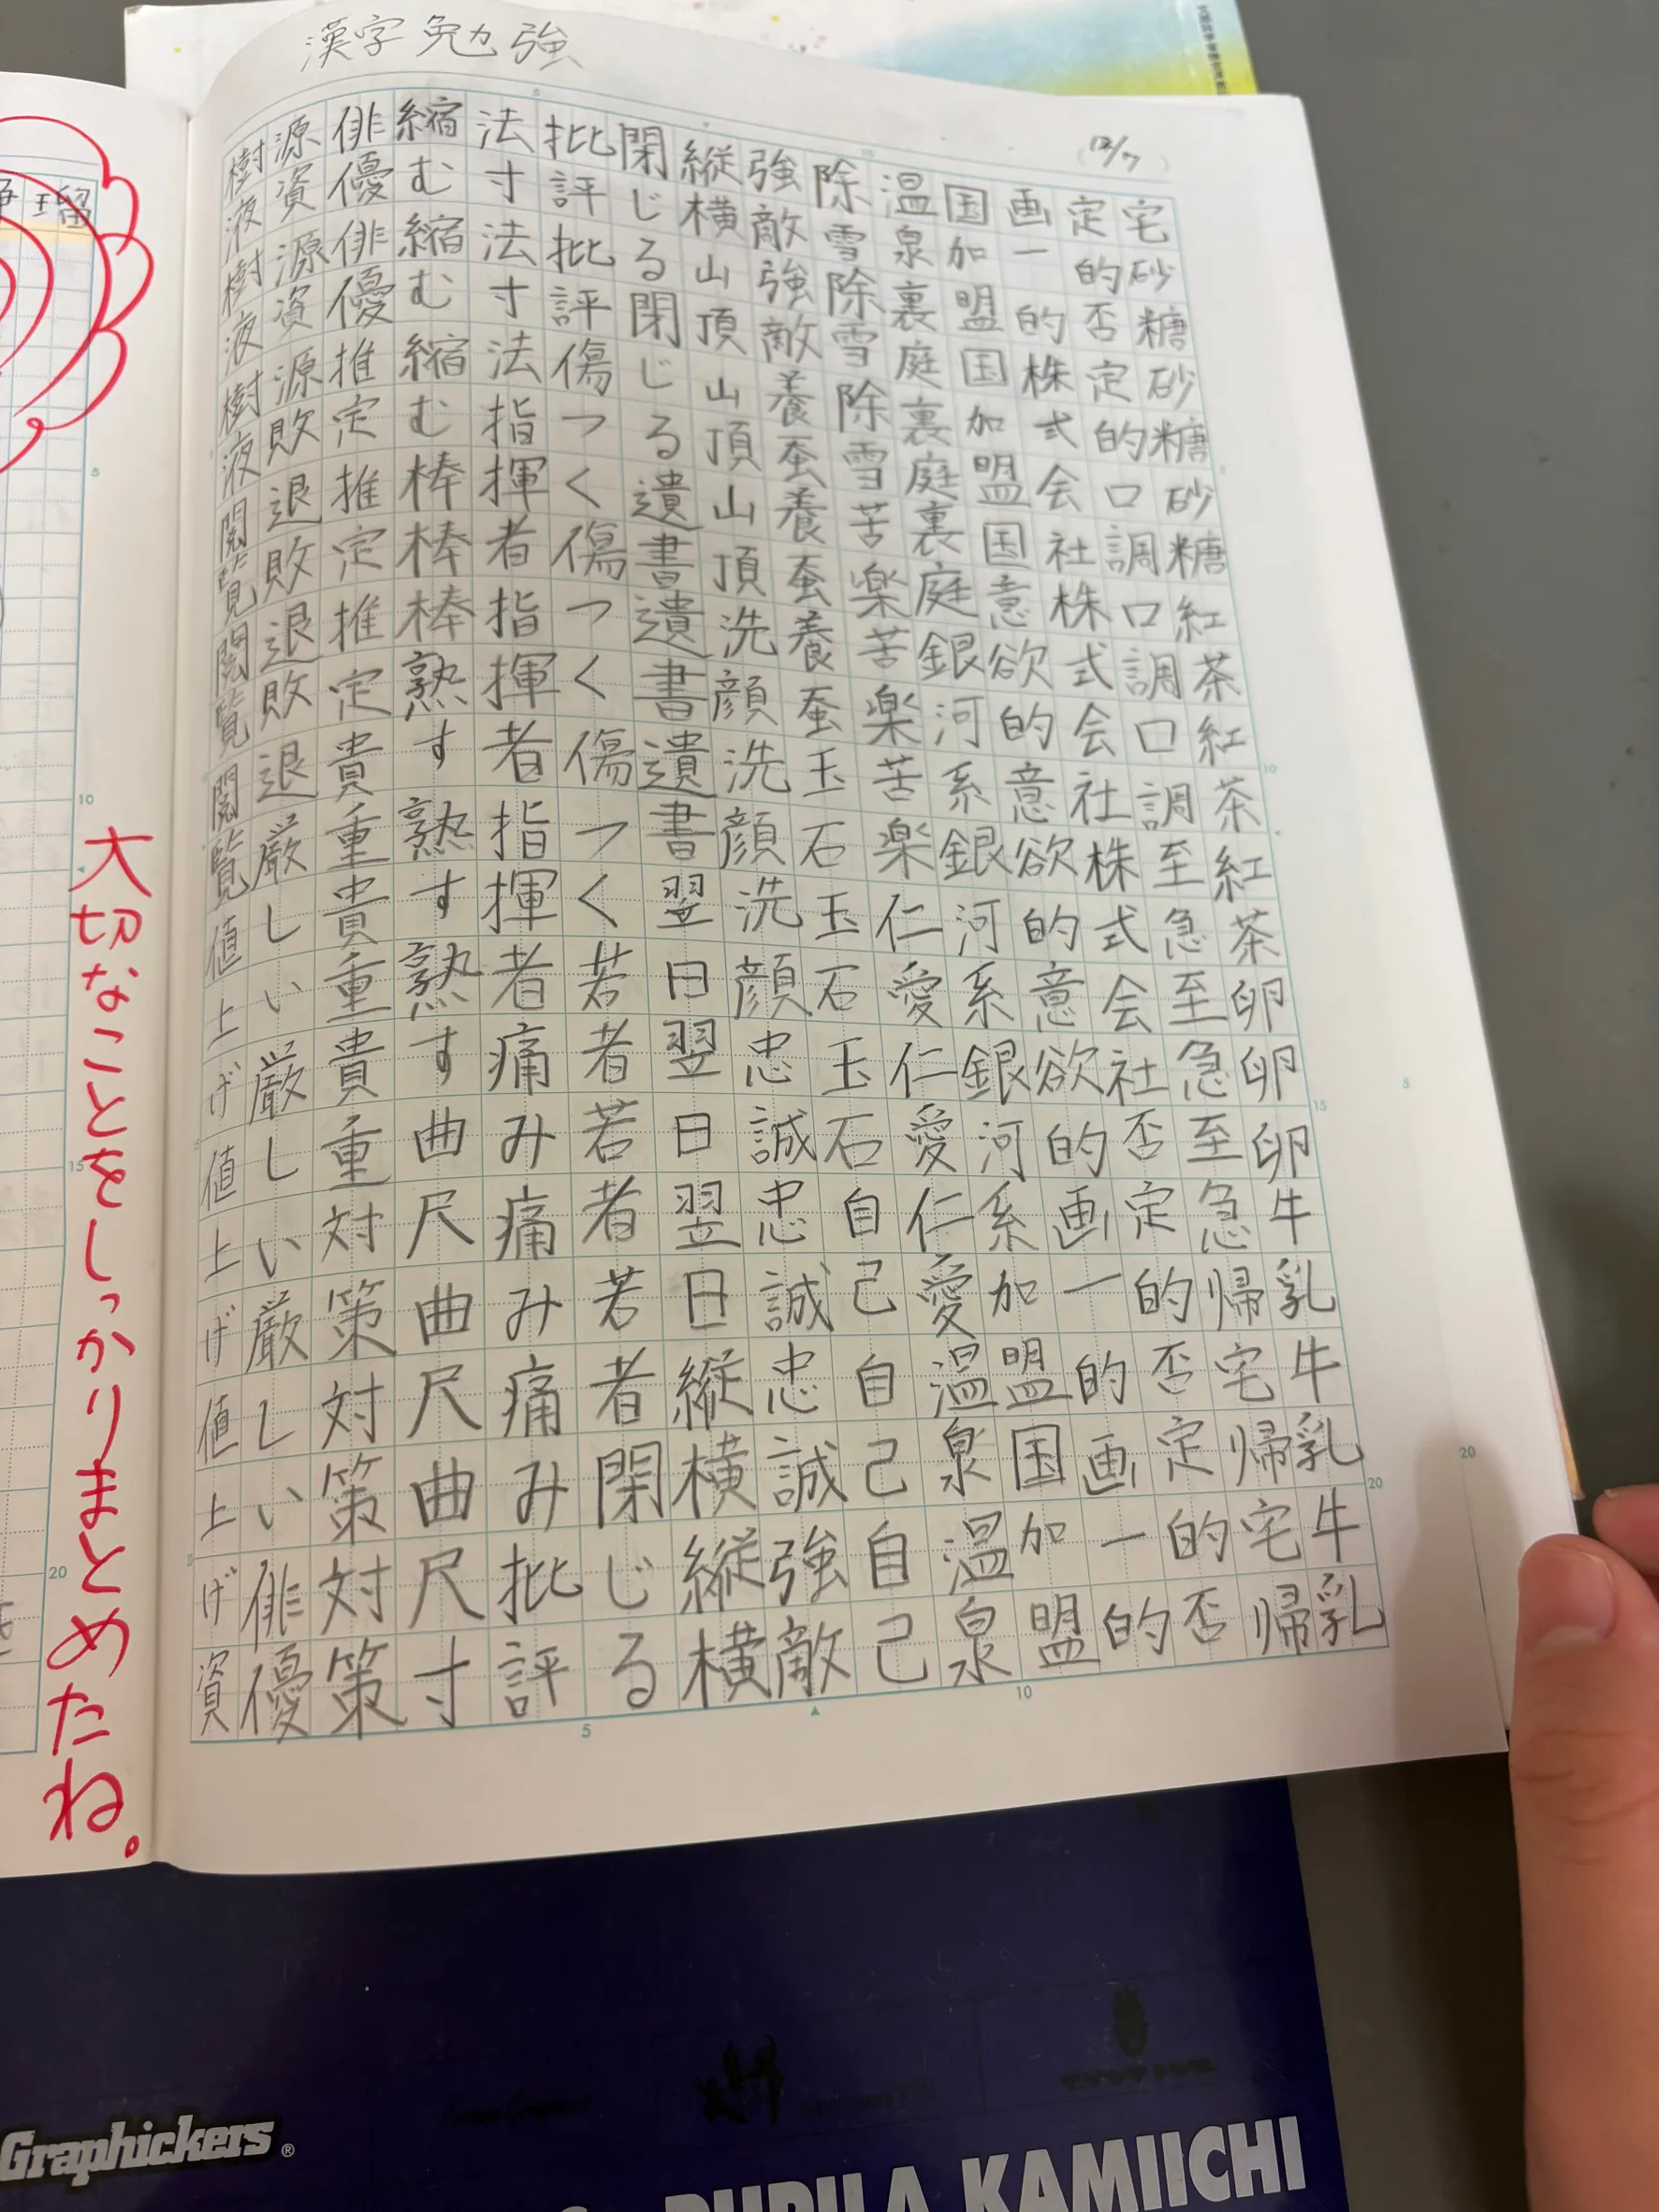 漢字勉強
12/7
樹液樹液樹液閲覧閲覧閲覧値上げ値上げ値上げ資
源資源資源敗退敗退敗退厳しい厳しい厳しい俳優
俳優俳優推定推定推定貴重貴重貴重対策対策対策
縮む縮む縮む棒棒棒熟す熟す熟す曲尺曲尺曲尺寸
法寸法寸法指揮者指揮者指揮者痛み痛み痛み批評
批評批評傷つく傷つく傷つく若者若者若者閉じる
閉じる閉じる遺書遺書遺書翌日翌日翌日縦横縦横
縦横山頂山頂山頂洗顔洗顔洗顔忠誠忠誠忠誠強敵
強敵強敵養蚕養蚕養蚕玉石玉石玉石自己自己自己
除雪除雪除雪苦楽苦楽苦楽仁愛仁愛仁愛温泉温泉
温泉裏庭裏庭裏庭銀河系銀河系銀河系加盟国加盟
国加盟国加盟国意欲的意欲的意欲的画一的画一的
画一的株式会社株式会社株式会社否定的否定的否
定的否定的口調口調口調至急至急至急帰宅帰宅帰
宅砂糖砂糖砂糖紅茶紅茶紅茶卵卵卵牛乳牛乳牛乳
大切なことをしっかりまとめたね。
5
10
15
20
5
10
15
20
5
20
Graphickers®
KAMIICHI